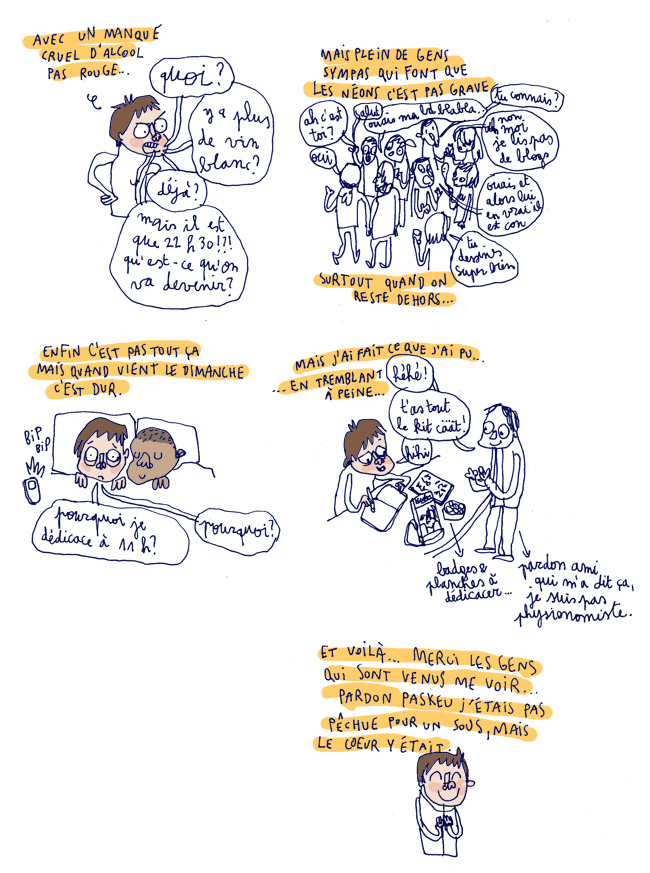 AVEC UN MANQUE
CRUEL D'ALCOOL
PAS ROUGE...
quoi?
y a plus
de vin
blanc?
déjà?
mais il est
que 22 h 30!!!
qu'est-ce qu'on
va devenir?
MAIS PLEIN DE GENS
SYMPAS QUI FONT QUE
LES NÉONS C'EST PAS GRAVE
ah c'est
toi?
oui
salut
ouais ma bd blabla.
tu connais?
non
moi
je lis pas
de blogs
ouais et
alors lui
en vrai il
est con
tu
dessines
super bien
SURTOUT QUAND ON
RESTE DEHORS...
ENFIN C'EST PAS TOUT ÇA
MAIS QUAND VIENT LE DIMANCHE
C'EST DUR.
BIP
BIP
pourquoi je
dédicace à 11 h?
pourquoi?
MAIS J'AI FAIT CE QUE J'AI PU...
...EN TREMBLANT
À PEINE...
héhé!
t'as tout
le kit cäät!
hihi
badges &
planches à
dédicacer...
pardon ami
qui m'a dit ça,
je suis pas
physionomiste.
ET VOILÀ... MERCI LES GENS
QUI SONT VENUS ME VOIR...
PARDON PASKEU J'ÉTAIS PAS
PÊCHUE POUR UN SOUS, MAIS
LE COEUR Y ÉTAIT.